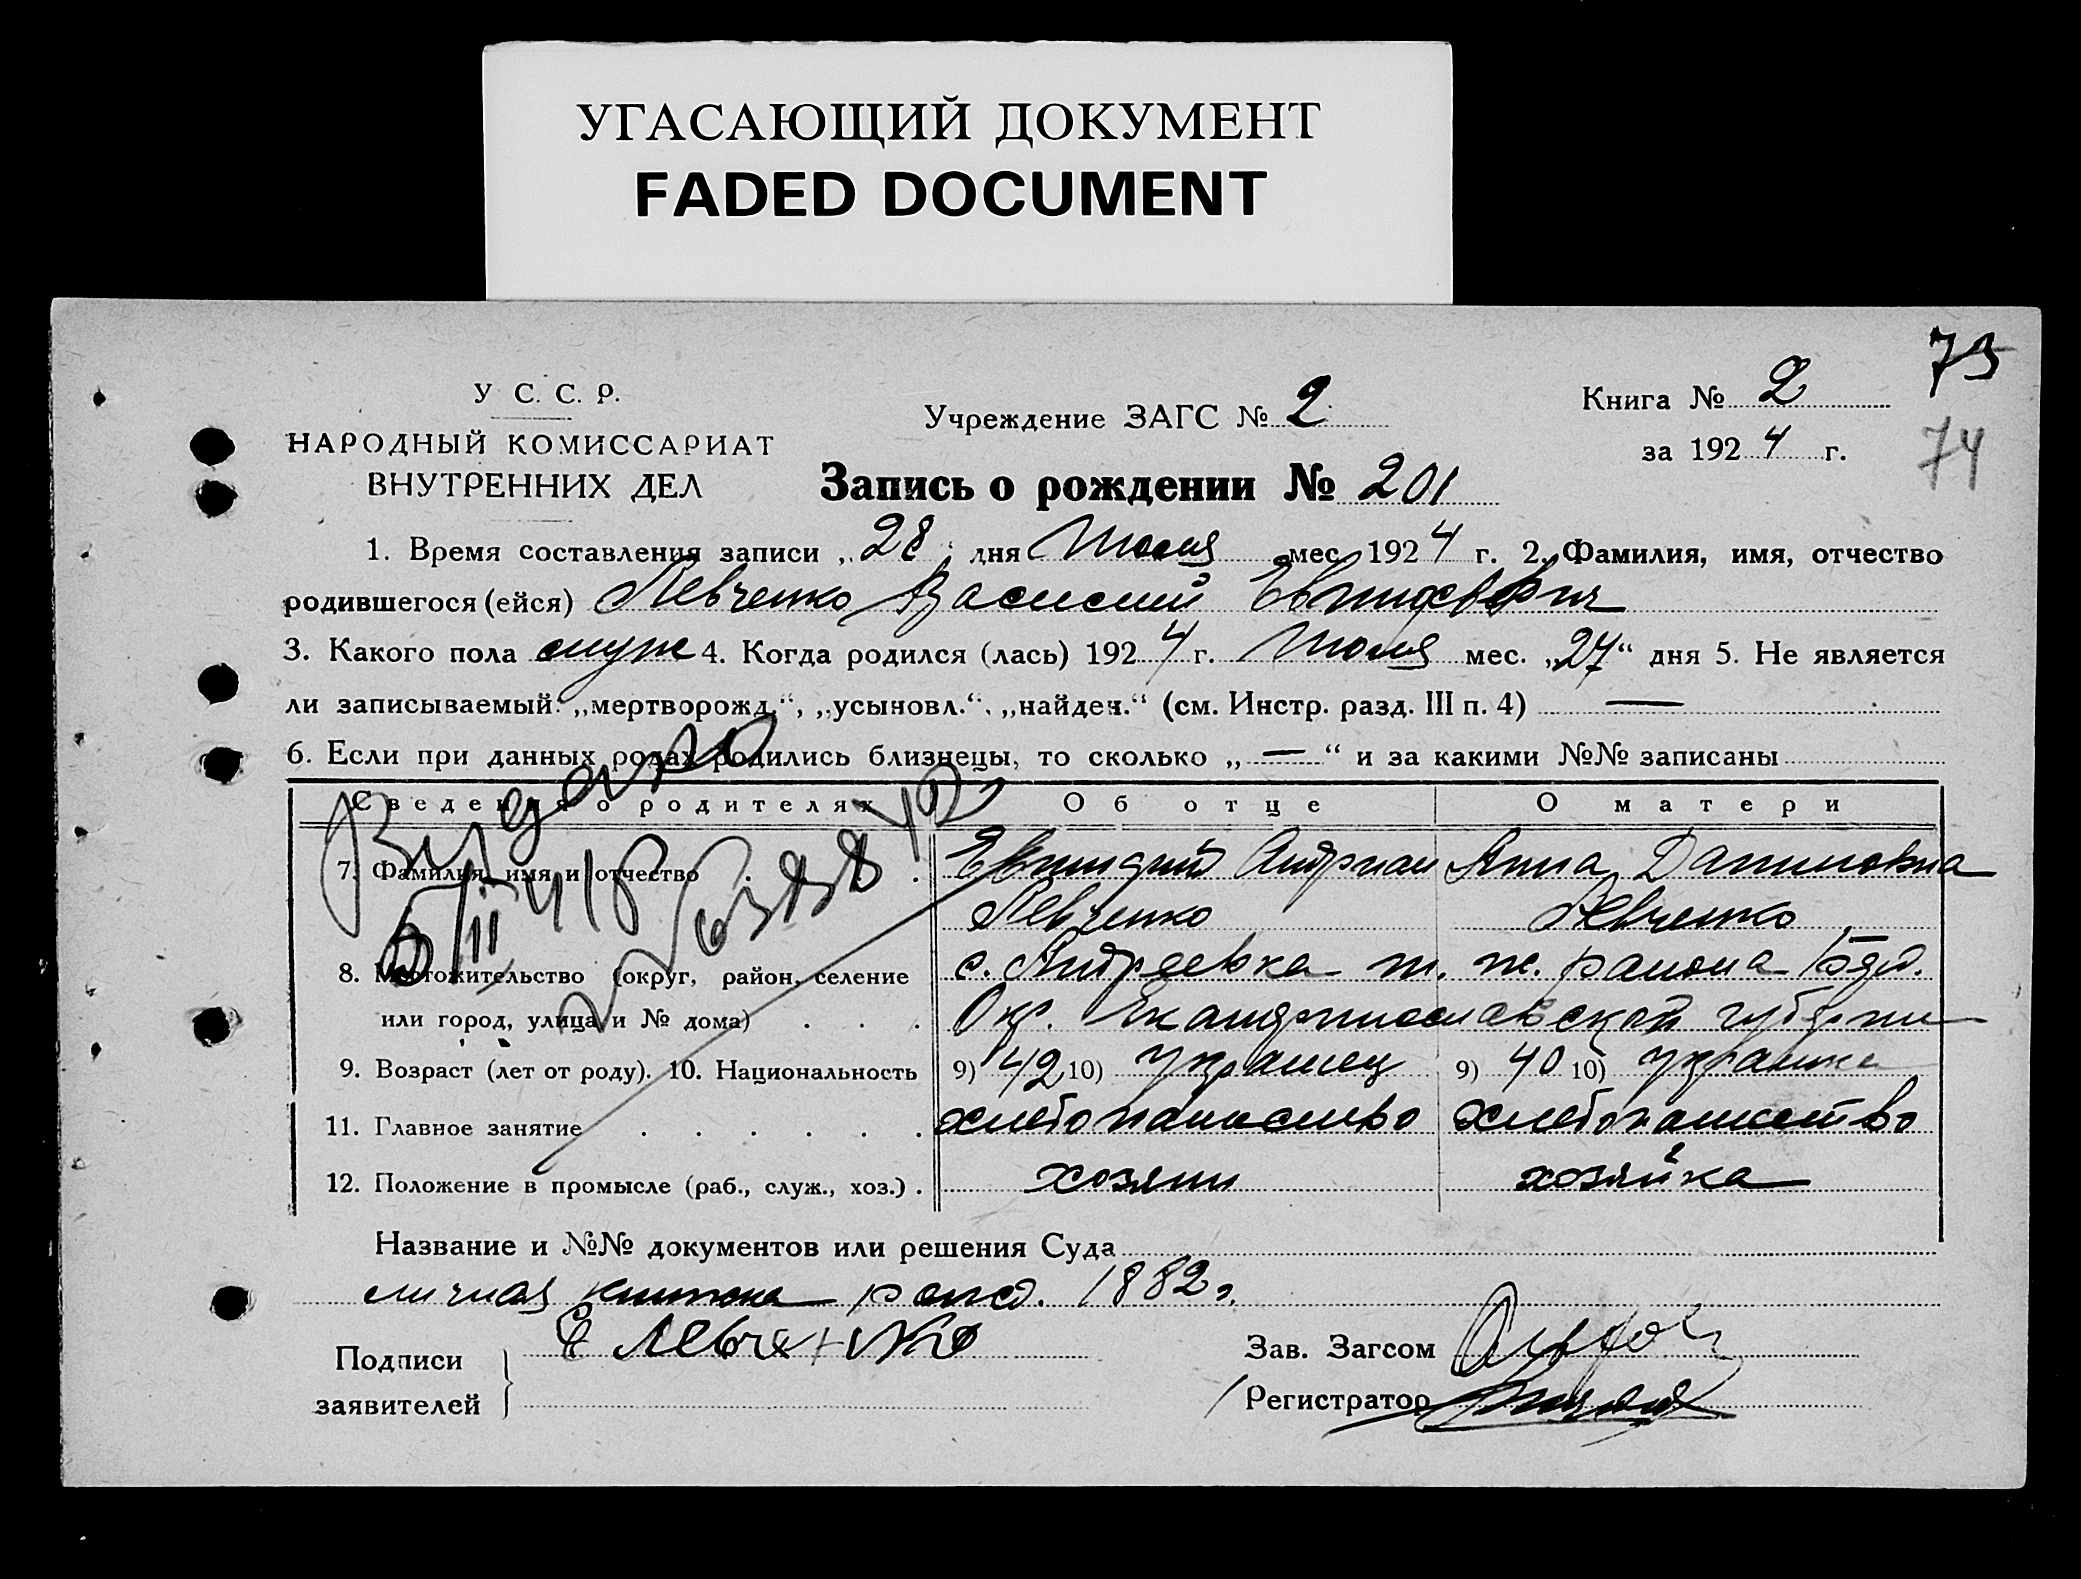 УГАСАЮЩИЙ ДОКУМЕНТ
FADED DOCUMENT
73
74
У С. С. Р.
НАРОДНЫЙ КОМИССАРИАТ
ВНУТРЕННИХ ДЕЛ
Учреждение ЗАГС № 2
Книга № 2
за 1924 г.
Запись о рождении № 201
1. Время составления записи „28“ дня Июля мес. 1924 г. 2. Фамилия, имя, отчество
родившегося (ейся) Левченко Василий
3. Какого пола муж 4. Когда родился (лась) 1924 г. Июля мес. „27“ дня 5. Не является
ли записываемый: „мертворожд.“, „усыновл.“, „найден.“ (см. Инстр. разд. III п. 4) —
6. Если при данных родах родились близнецы, то сколько „—“ и за какими №№ записаны
Сведения о родителях Об отце О матери
7. Фамилия, имя и отчество Анна Даниловна
Левченко Левченко
8. Местожительство (округ, район, селение с. Андреевка района Бэрд.
или город, улица и № дома) Окр. Екатеринославской губернии
9. Возраст (лет от роду). 10. Национальность 9) 42 10) украинец 9) 40 10) украинка
11. Главное занятие хлебопашество хлебопашество
12. Положение в промысле (раб., служ., хоз.) хозяин хозяйка
Выдано
Название и №№ документов или решения Суда
личная книжка 1882 г.
Подписи заявителей Е Левченко
Зав. Загсом
Регистратор